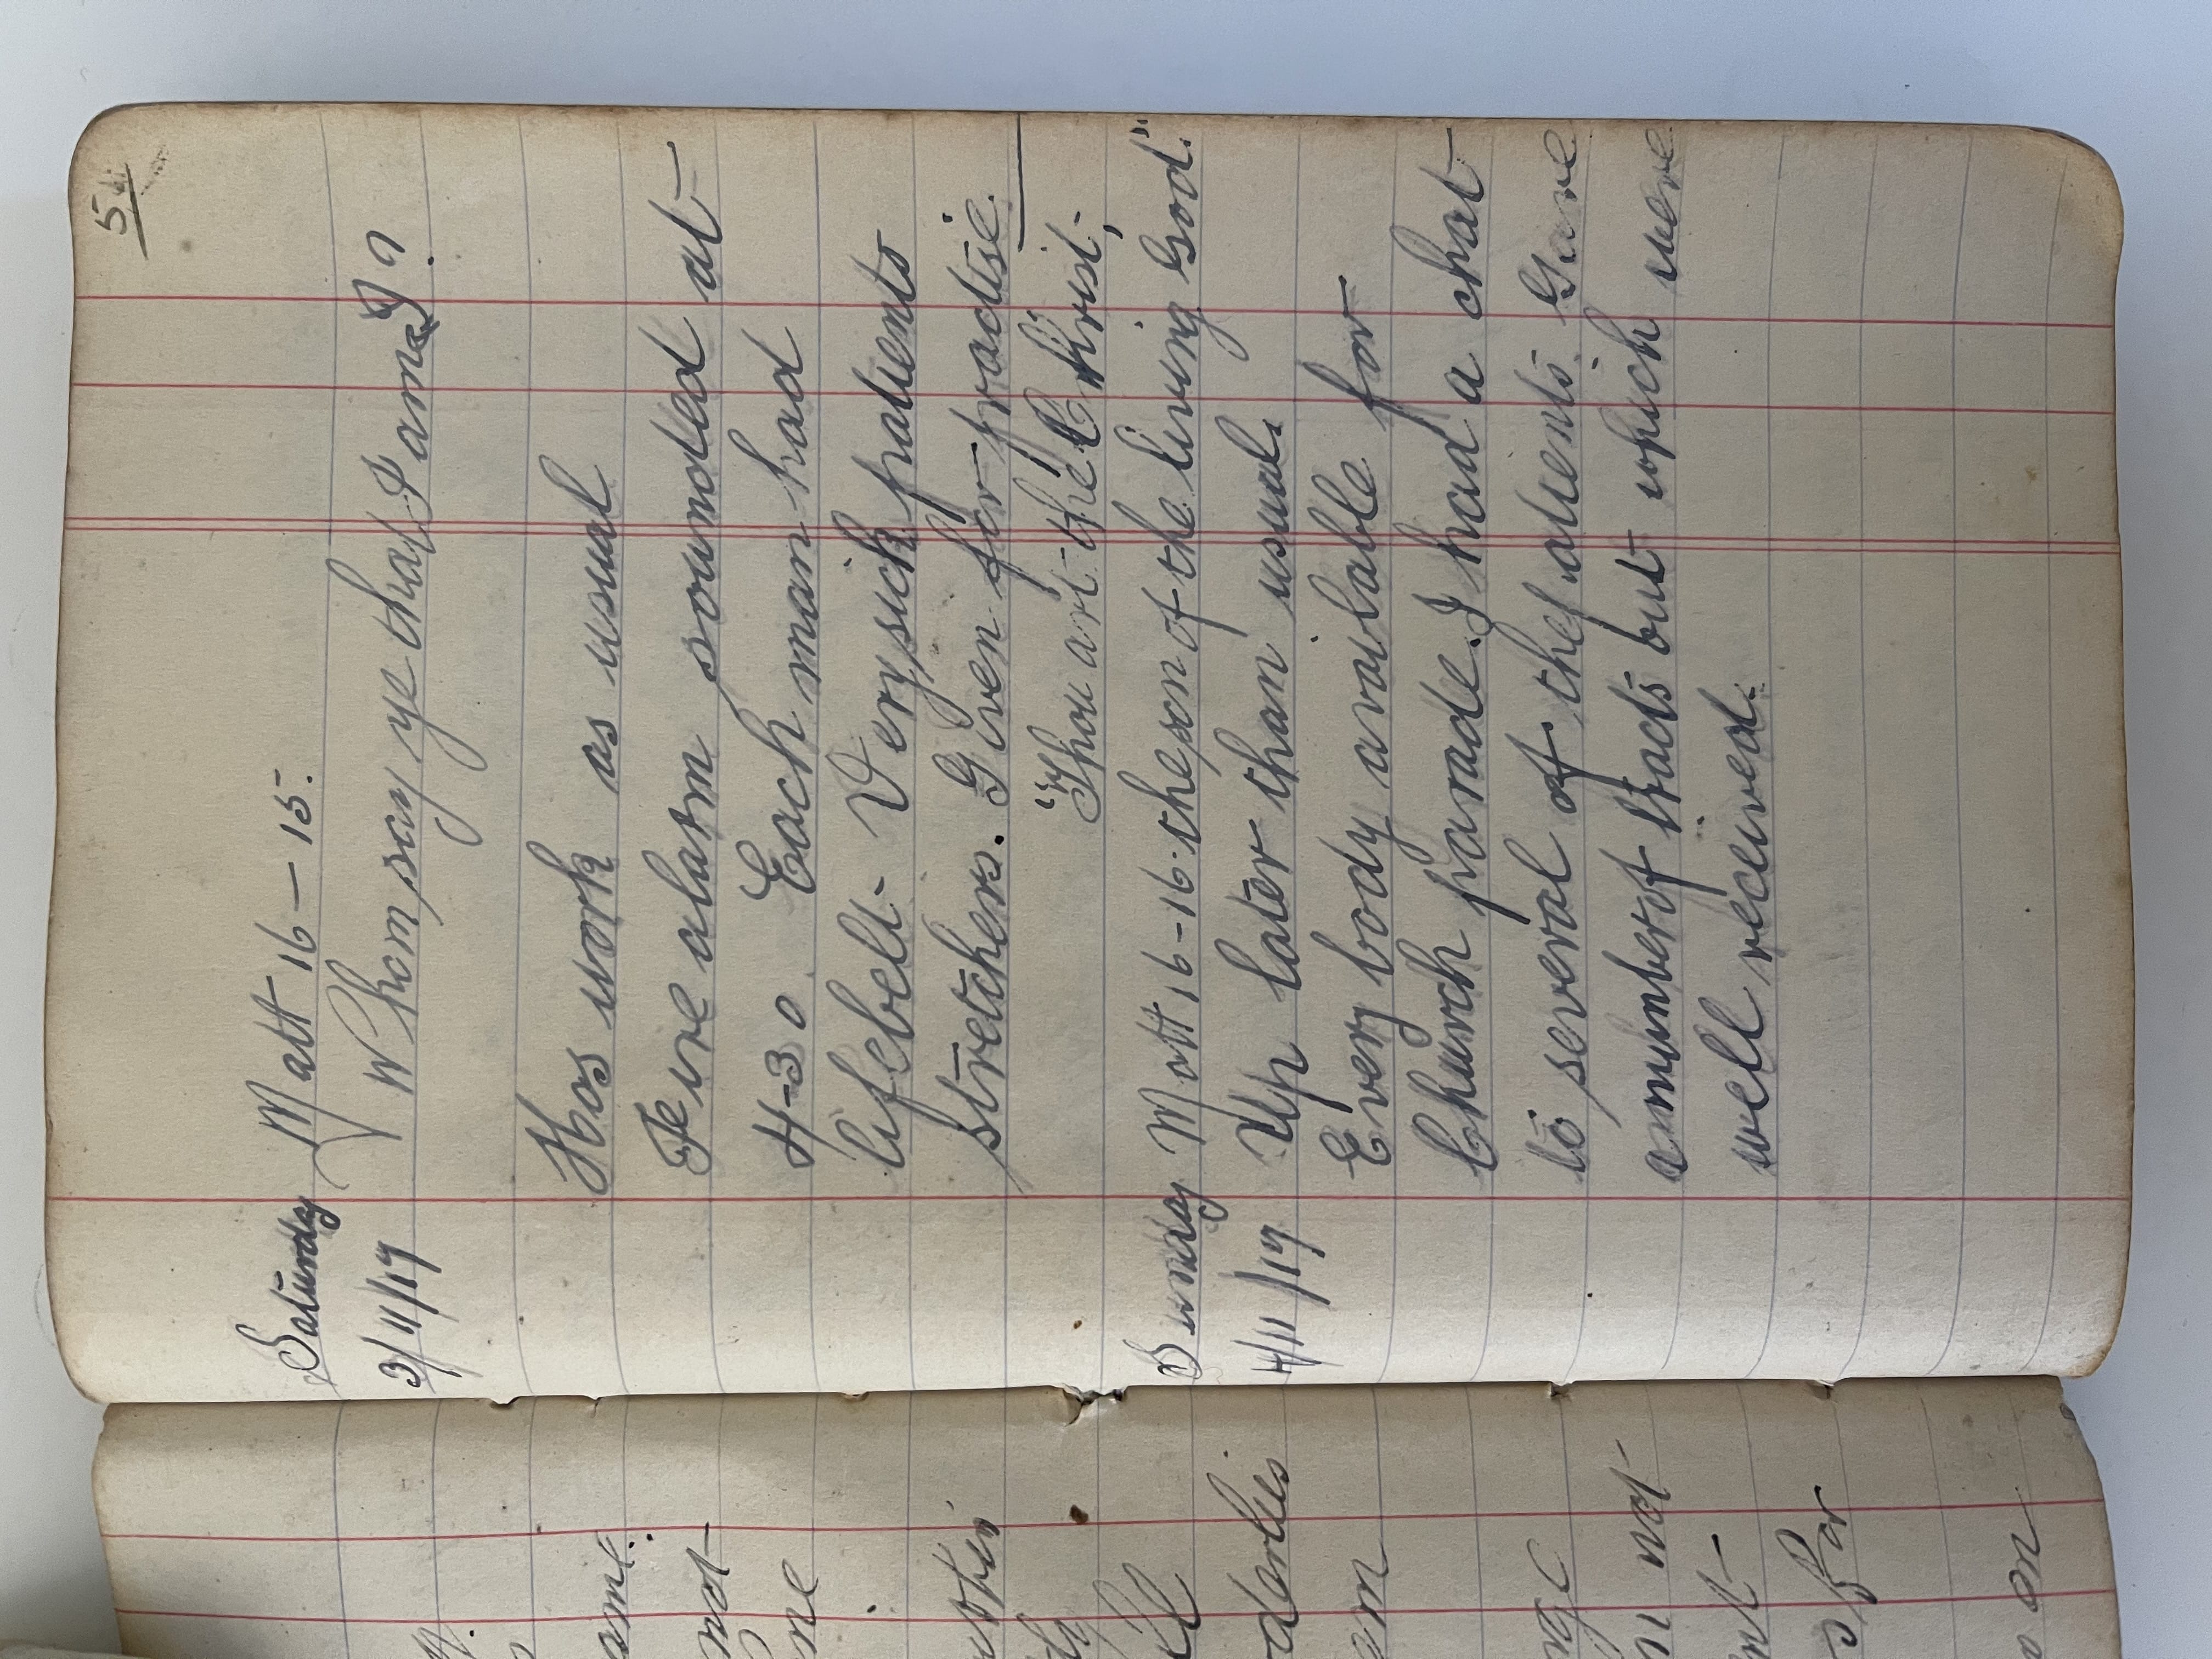 54
Saturday Matt 16-15.
3/11/17 Whom say ye that I am I?
Hos work as usual
Fire alarm sounded at
4-30 Each man had
lifebelt. Very sick patients
stretchers. Given for practise.
"Thou art the Christ,
Sunday Matt 16-16. the son of the living God."
4/11/17 Up later than usual.
Every body available for
Church parade. I had a chat
to several of the patients. Gave
a number of tracts out which were
well received.
not
ne
darkies
am
not
far
on